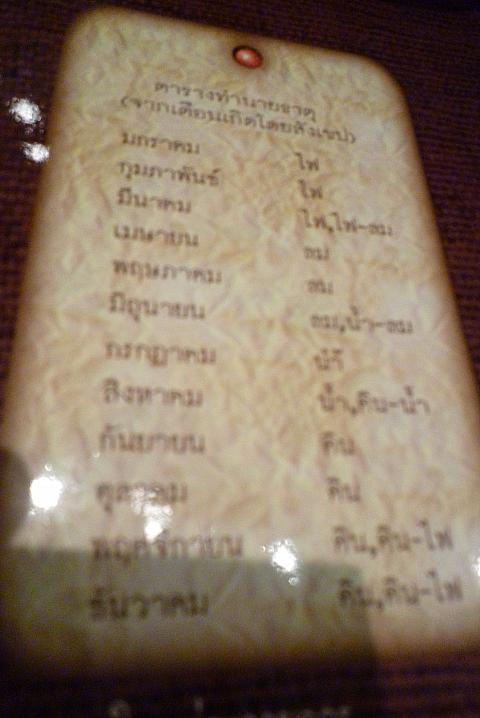 ตารางทำนายธาตุ
(จากเดือนเกิดโดยสังเขป)
มกราคม ไฟ
กุมภาพันธ์ ไฟ
มีนาคม ไฟ,ไฟ-ลม
เมษายน ลม
พฤษภาคม ลม
มิถุนายน ลม,น้ำ-ลม
กรกฎาคม น้ำ
สิงหาคม น้ำ,ดิน-น้ำ
กันยายน ดิน
ตุลาคม ดิน
พฤศจิกายน ดิน,ดิน-ไฟ
ธันวาคม ดิน,ดิน-ไฟ